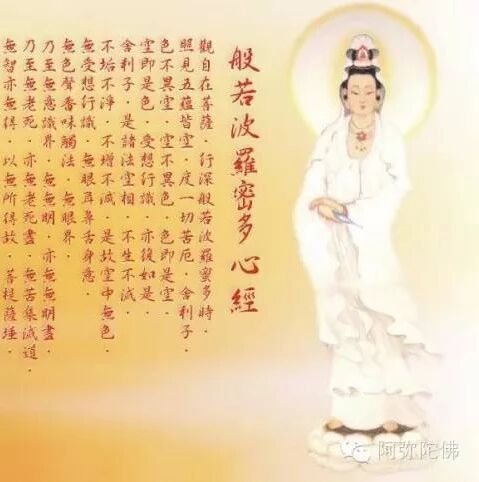 般若波羅密多心經
觀自在菩薩．行深般若波羅蜜多時．
照見五蘊皆空．度一切苦厄．舍利子．
色不異空．空不異色．色即是空．
空即是色．受想行識．亦復如是．
舍利子．是諸法空相．不生不滅．
不垢不淨．不增不減．是故空中無色．
無受想行識．無眼耳鼻舌身意．
無色聲香味觸法．無眼界．
乃至無意識界．無無明．亦無無明盡．
乃至無老死．亦無老死盡．無苦集滅道．
無智亦無得．以無所得故．菩提薩埵．
阿弥陀佛